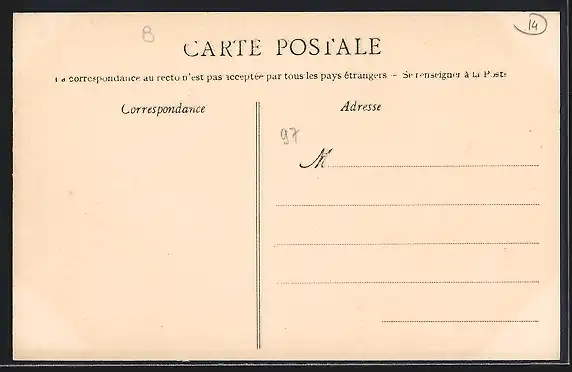 B
14
CARTE POSTALE
La correspondance au recto n'est pas acceptée par tous les pays étrangers – Se renseigner à la Poste
Correspondance
Adresse
97
M